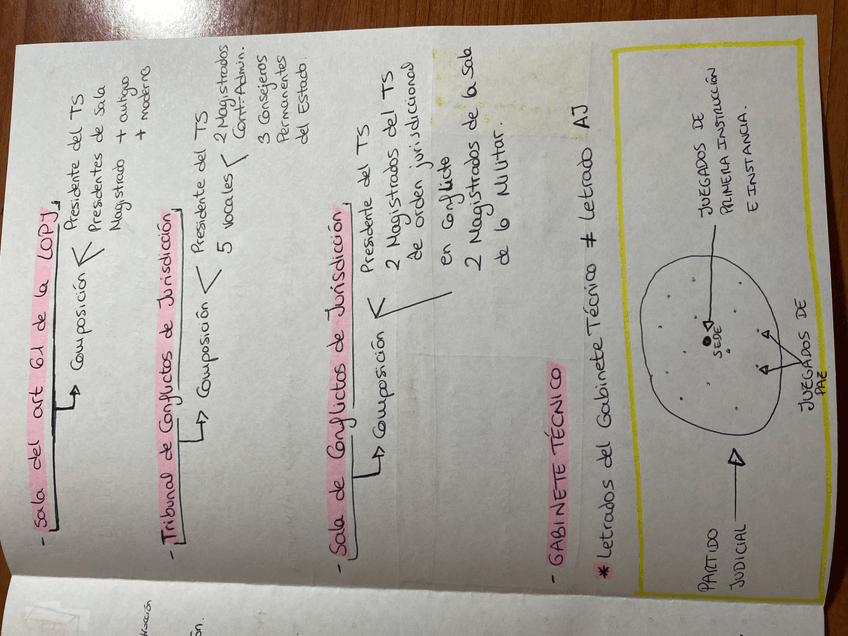 - Sala del art 61 de la LOPJ
Composición
Presidente del TS
Presidentes de Sala
Magistrado + antiguo
+ moderno
- Tribunal de Conflictos de Jurisdicción
Composición
Presidente del TS
5 vocales
2 Magistrados
Cont-Admin.
3 Consejeros
Permanentes
del Estado
- Sala de Conflictos de Jurisdicción
Composición
Presidente del TS
2 Magistrados del TS
de orden jurisdiccional
en conflicto
2 Magistrados de la Sala
de lo Militar.
- GABINETE TÉCNICO
* Letrados del Gabinete Técnico ≠ Letrado AJ
PARTIDO
JUDICIAL
SEDE
JUZGADOS DE
PRIMERA INSTRUCCIÓN
E INSTANCIA.
JUZGADOS DE
PAZ